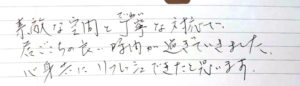 素敵な空間と丁寧な対応で、
居ごこちの良い時間が過ぎていきました。
心身共にリフレッシュできたと思います。